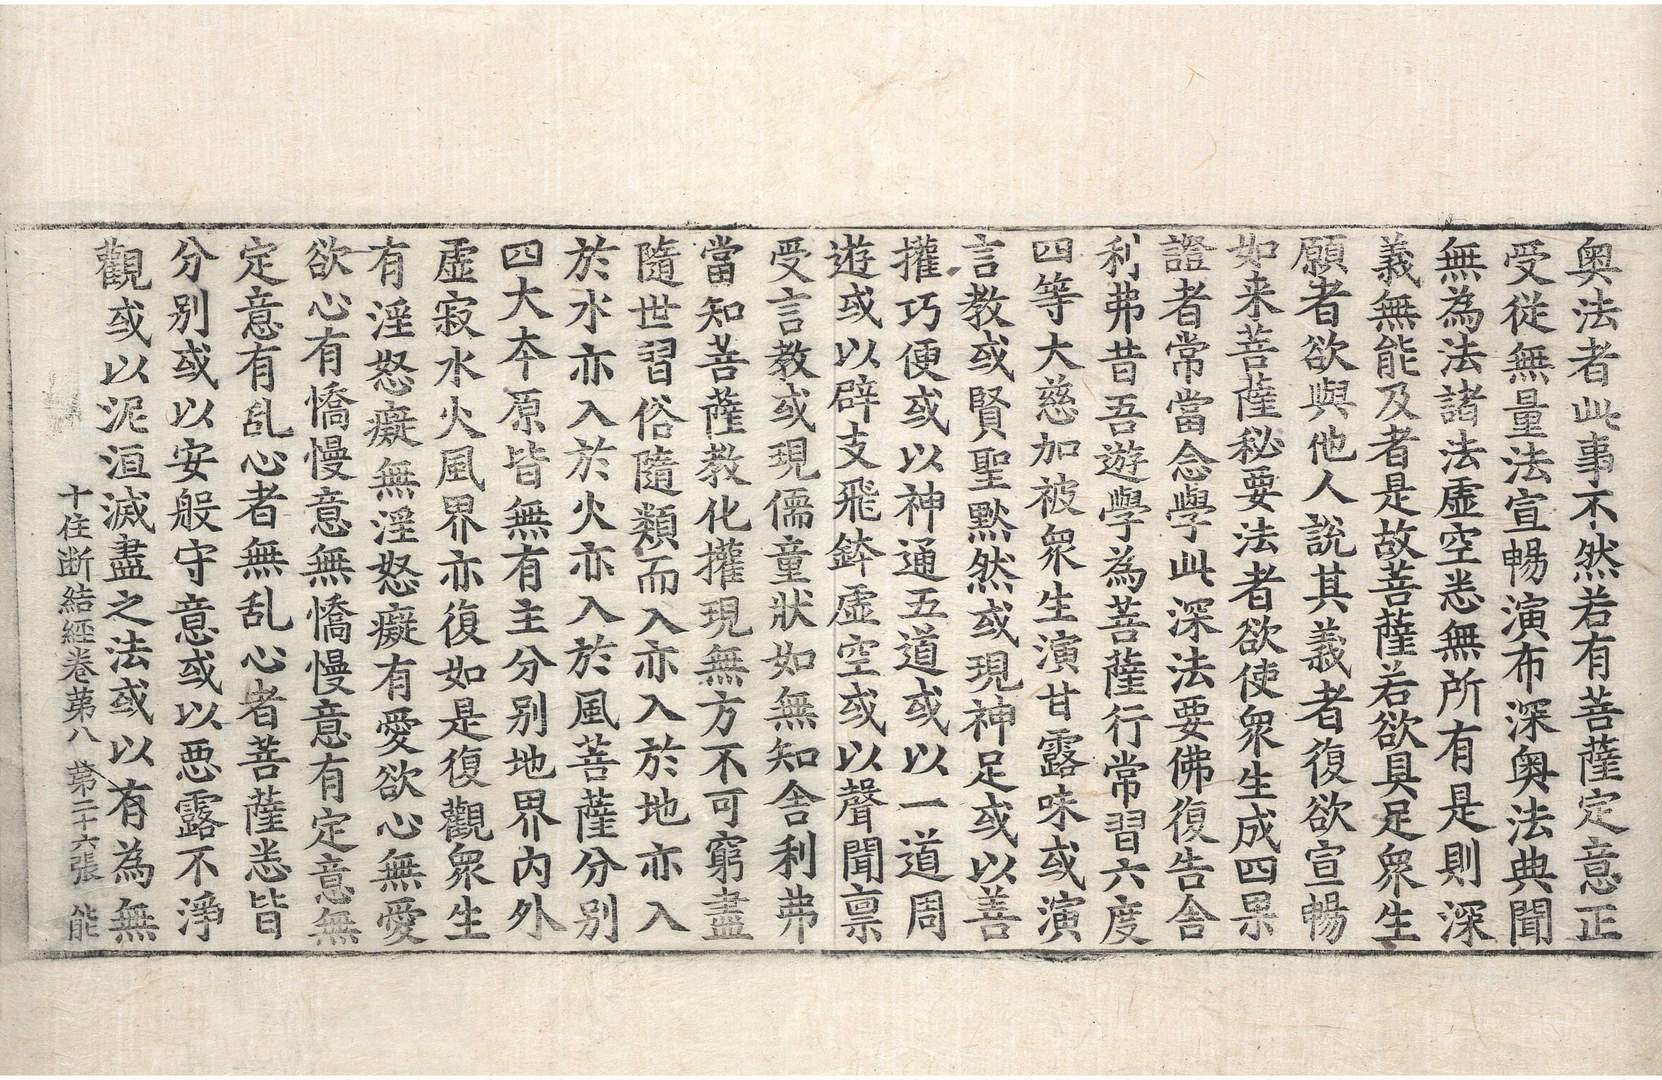 奧法者此事不然若有菩薩定意正
受從無量法宣暢演布深奧法典聞
無為法諸法虛空悉無所有是則深
義無能及者是故菩薩若欲具足衆生
願者欲與他人說其義者復欲宣暢
如来菩薩秘要法者欲使衆生成四果
證者常當念學此深法要佛復告舍
利弗昔吾遊學為菩薩行常習六度
四等大慈加被衆生演甘露味或演
言教或賢聖默然或現神足或以善
攉巧便或以神通五道或以一道周
遊或以辟支飛鉢虛空或以聲聞禀
受言教或現儒童狀如無知舍利弗
當知菩薩教化攉現無方不可窮盡
隨世習俗隨類而入亦入於地亦入
於水亦入於火亦入於風菩薩分別
四大本原皆無有主分別地界內外
虛寂水火風界亦復如是復觀衆生
有淫怒癡無淫怒癡有愛欲心無愛
欲心有憍慢意無憍慢意有定意無
定意有乱心者無乱心者菩薩悉皆
分別或以安般守意或以惡露不淨
觀或以泥洹滅盡之法或以有為無
十住断結經卷苐八 苐二十六張 能